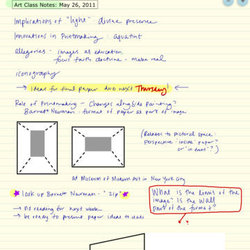 Art Class Notes: May 26, 2011
Implications of "light" divine presence
Innovations in Printmaking: aquatint
Allegories - images as education
Iconography
→ Ideas for final paper due next Thursday!
Role of Printmaking - Changes alongside Painting?
Barnett Newman: format of paper as part of image
(Relates to pictorial space
Perspective: inside paper?
or "in east"?)
At Museum of Modern Art in New York City
look up Barnett Newman - "Zip"
→ no reading for next week
→ be ready to present paper ideas to class
What is the limits of the
image? Is the wall
part of the format?